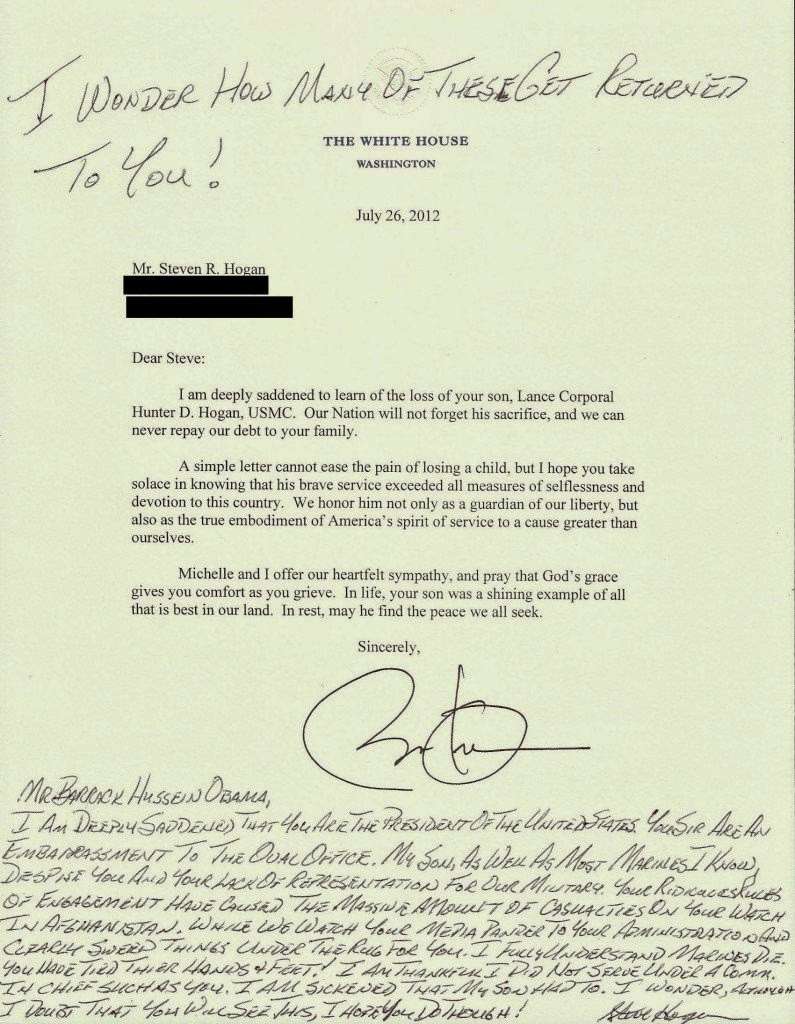 I WONDER HOW MANY OF THESE GET RETURNED
TO YOU!
THE WHITE HOUSE
WASHINGTON
July 26, 2012
Mr. Steven R. Hogan
Dear Steve:
I am deeply saddened to learn of the loss of your son, Lance Corporal
Hunter D. Hogan, USMC.  Our Nation will not forget his sacrifice, and we can
never repay our debt to your family.
A simple letter cannot ease the pain of losing a child, but I hope you take
solace in knowing that his brave service exceeded all measures of selflessness and
devotion to this country.  We honor him not only as a guardian of our liberty, but
also as the true embodiment of America's spirit of service to a cause greater than
ourselves.
Michelle and I offer our heartfelt sympathy, and pray that God's grace
gives you comfort as you grieve.  In life, your son was a shining example of all
that is best in our land.  In rest, may he find the peace we all seek.
Sincerely,
MR BARRACK HUSSEIN OBAMA,
I AM DEEPLY SADDENED THAT YOU ARE THE PRESIDENT OF THE UNITED STATES. YOU SIR ARE AN
EMBARRASSMENT TO THE OVAL OFFICE. MY SON, AS WELL AS MOST MARINES I KNOW,
DESPISE YOU AND YOUR LACK OF REPRESENTATION FOR OUR MILITARY. YOUR RIDICULOUS RULES
OF ENGAGEMENT HAVE CAUSED THE MASSIVE AMOUNT OF CASUALTIES ON YOUR WATCH
IN AFGHANISTAN. WHILE WE WATCH YOUR MEDIA PANDER TO YOUR ADMINISTRATION AND
CLEARLY SWEEP THINGS UNDER THE RUG FOR YOU. I FULLY UNDERSTAND MARINES DIE.
YOU HAVE TIED THIER HANDS & FEET! I AM THANKFUL I DID NOT SERVE UNDER A COMM.
IN CHIEF SUCH AS YOU. I AM SICKENED THAT MY SON HAD TO. I WONDER, ALTHOUGH
I DOUBT THAT YOU WILL SEE THIS, I HOPE YOU DO THOUGH!
Steve Hogan